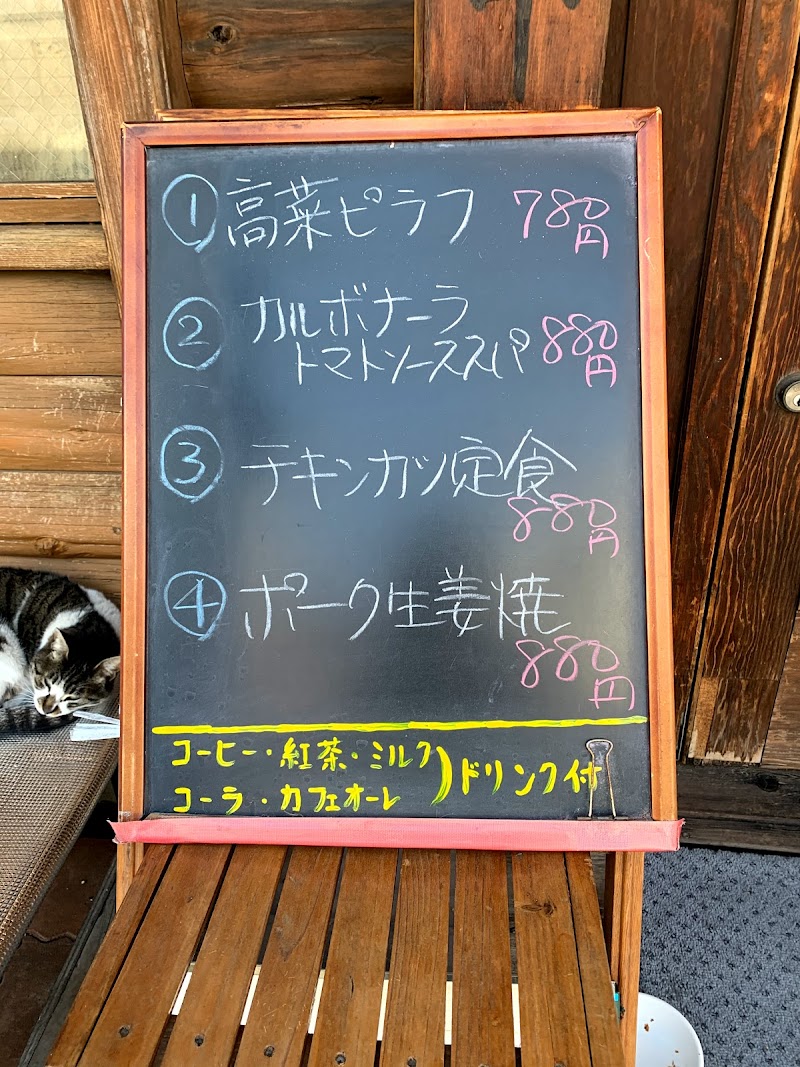 ① 高菜ピラフ 780円
② カルボナーラ
トマトソーススパ 880円
③ チキンカツ定食
880円
④ ポーク生姜焼
880円
コーヒー・紅茶・ミルク
コーラ・カフェオーレ ) ドリンク付